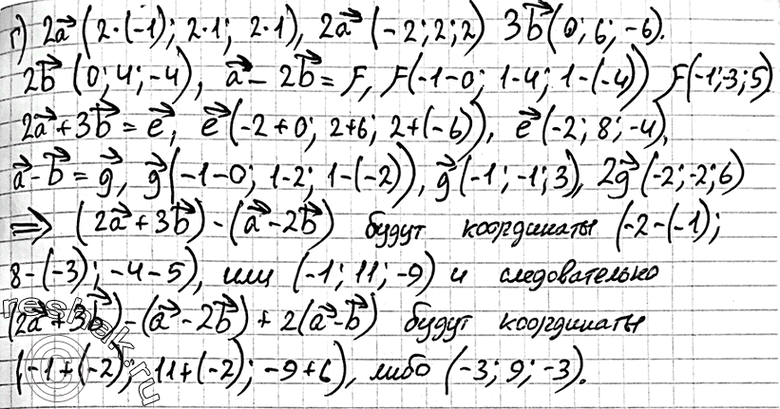 г) 2a⃗ (2·(-1); 2·1; 2·1), 2a⃗ (-2; 2; 2) 3b⃗ (0; 6; -6).
2b⃗ (0; 4; -4), a⃗ - 2b⃗ = F, F(-1-0; 1-4; 1-(-4)) F(-1;-3; 5)
2a⃗ + 3b⃗ = e⃗, e⃗ (-2+0; 2+6; 2+(-6)), e⃗ (-2; 8; -4),
a⃗ - b⃗ = g⃗, g⃗ (-1-0; 1-2; 1-(-2)), g⃗ (-1; -1; 3), 2g⃗ (-2;-2;6)
⟹ (2a⃗ + 3b⃗) - (a⃗ - 2b⃗) будут координаты (-2-(-1);
8-(-3); -4-5), или (-1; 11; -9) и следовательно
(2a⃗ + 3b⃗) - (a⃗ - 2b⃗) + 2(a⃗ - b⃗) будут координаты
(-1+(-2); 11+(-2); -9+6), либо (-3; 9; -3).
reshak.ru